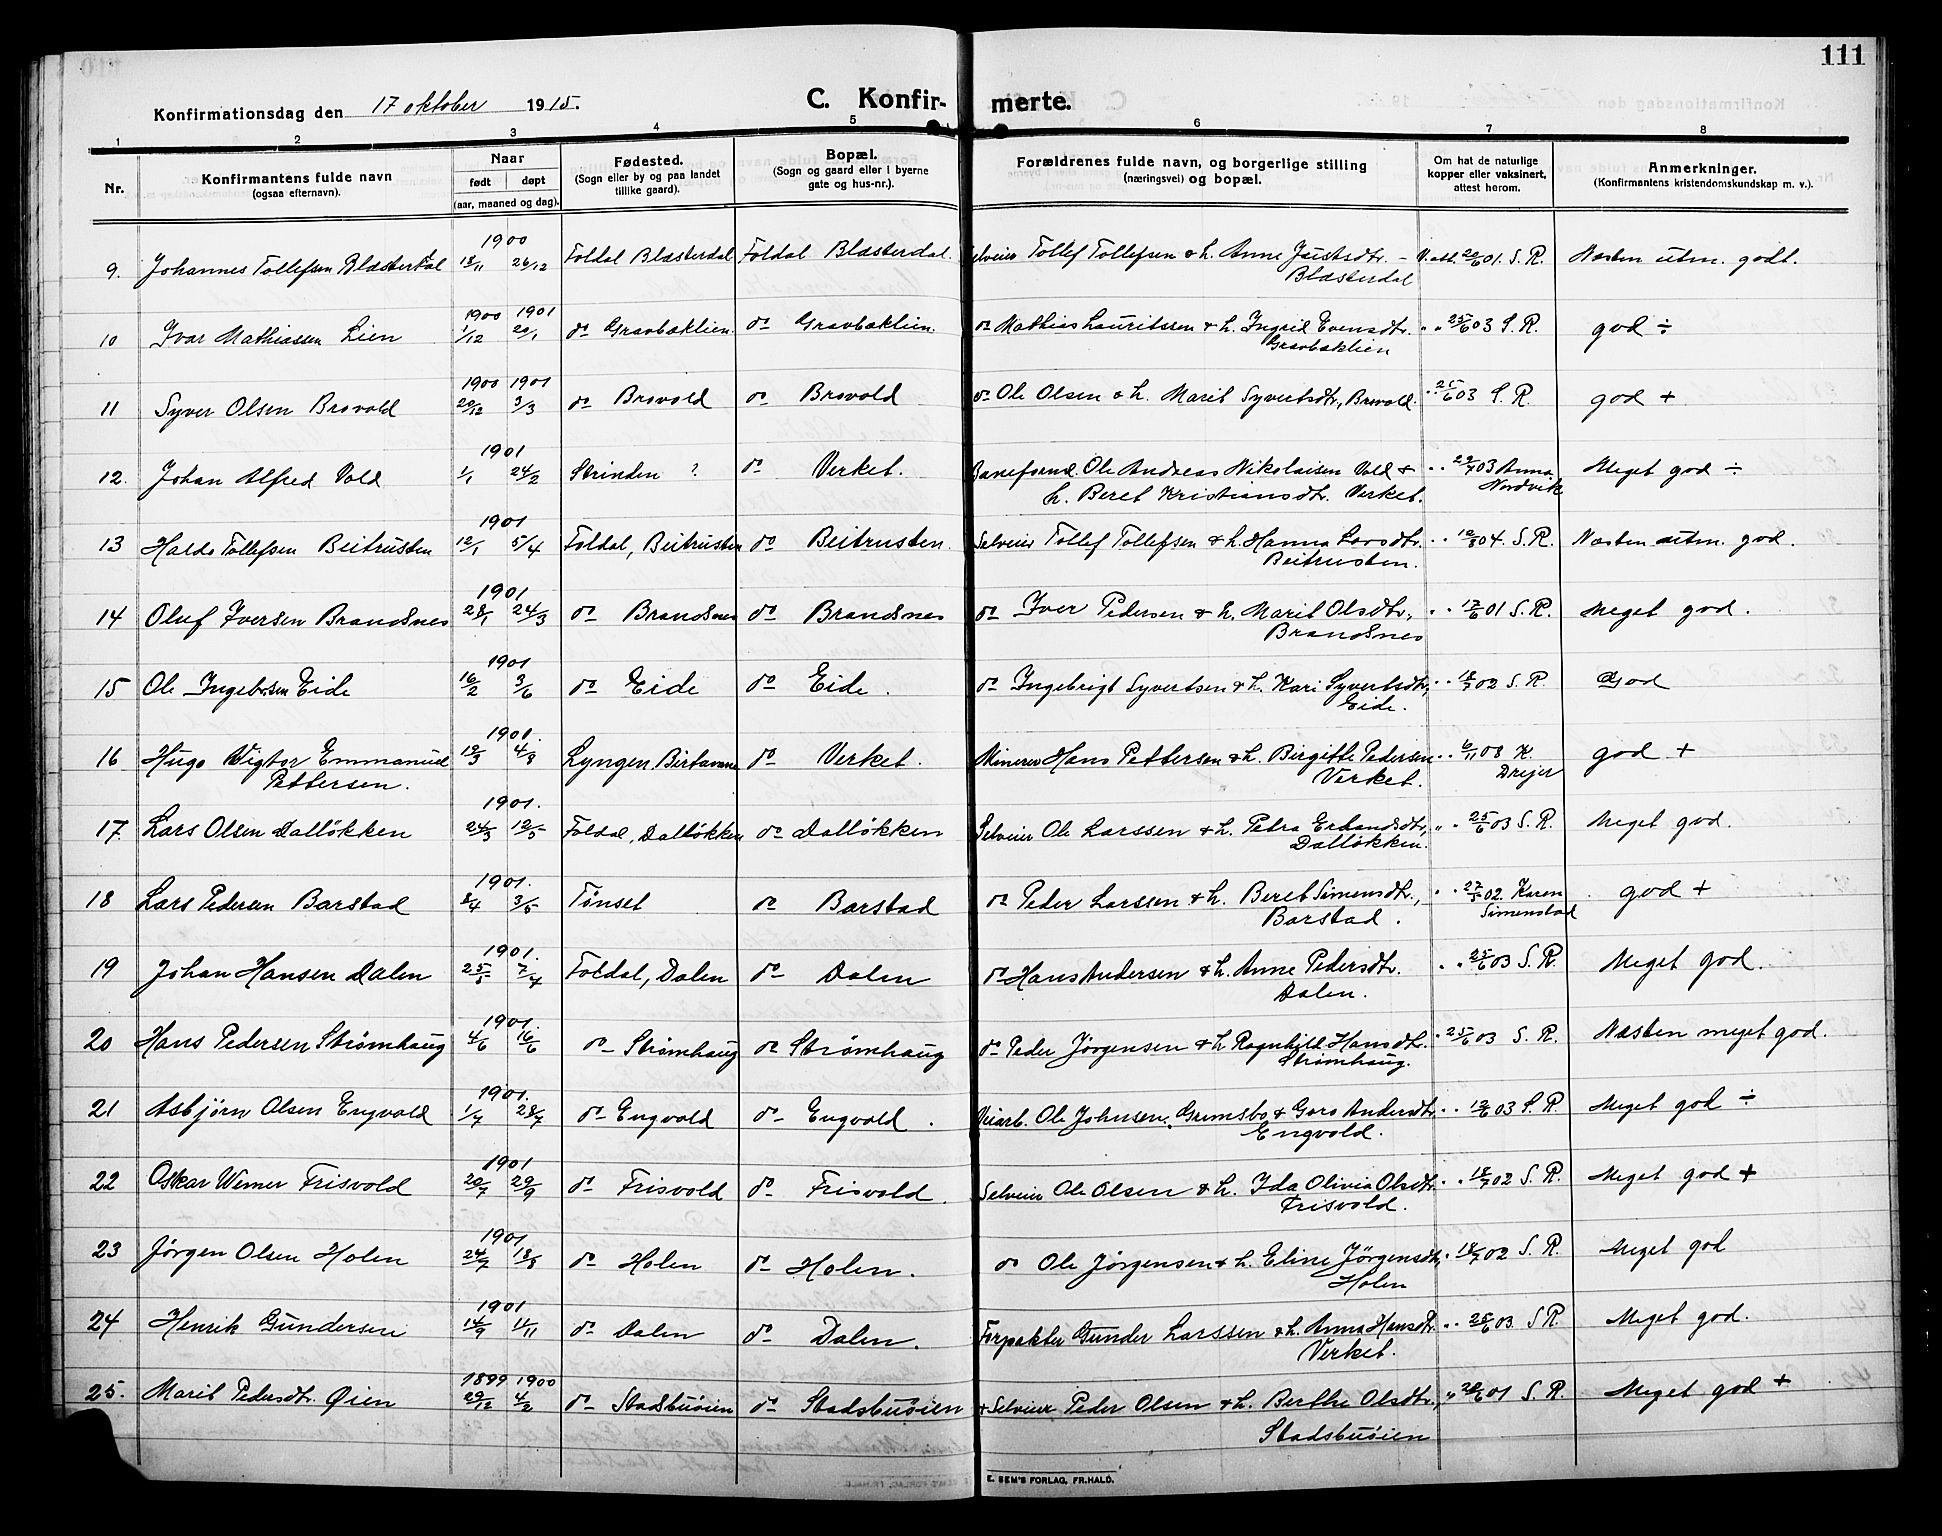 111
Konfirmationsdag den 17 oktober 1915.
C. Konfir- merte.
1 2 3 4 5 6 7 8
Nr.
Konfirmantens fulde navn
(ogsaa efternavn).
Naar
født døpt
(aar, maaned og dag).
Fødested.
(Sogn eller by og paa landet
tillike gaard).
Bopæl.
(Sogn og gaard eller i byerne
gate og hus-nr.).
Forældrenes fulde navn, og borgerlige stilling
(næringsvei) og bopæl.
Om hat de naturlige
kopper eller vaksinert,
attest herom.
Anmerkninger.
(Konfirmantens kristendomskundskap m. v.).
1900
9. Johannes Tollefsen Blæsterdal 18/11 26/12 Foldal Blæsterdal Foldal Blæsterdal. Selveier Tollef Tollefsen & h. Anne Joustsdtr. – V. att. 20/6 01. S. R. Næsten utm. godt.
Blæsterdal
1900 1901
10 Ivar Mathiassen Lien 1/12 20/1 do Gravbæklien do Gravbæklien. do Mathias Lauritssen & h. Ingrid Evensdtr. " " 25/6 03 S. R. god ÷
Gravbæklien
1900 1901
11 Syver Olsen Brovold 20/12 3/3 do Brovold do Brovold do Ole Olsen & h. Marit Syvertsdtr., Brovold. " " 25/6 03 S. R. god +
1901
12. Johan Alfred Vold 1/1 24/2 Strinden ? do Verket. Baneformd. Ole Andreas Nikolaisen Vold & " " 29/7 03 Anna Meget god ÷
h. Beret Kristiansdtr. Verket. Nordvik
1901
13 Haldo Tollefsen Beitrusten 12/1 5/4 Foldal, Beitrusten do Beitrusten. Selveier Tollef Tollefsen & h. Hanna Larsdtr. " " 10/8 04. S. R. Næsten utm. god.
Beitrusten.
1901
14 Oluf Iversen Brandsnes 28/1 24/3 do Brandsnes do Brandsnes do Iver Pedersen & h. Marit Olsdtr., " " 17/6 01 S. R. Meget god.
Brandsnes
1901
15 Ole Ingebr.sen Eide 16/2 3/6 do Eide do Eide. do Ingebrigt Syvertsen & h. Kari Syvertsdtr, " " 18/7 02 S. R. God
Eide.
1901.
16 Hugo Vigtor Emmanuel 19/3 4/8 Lyngen, Birtavarre do Verket. Minerer Hans Pettersen & h. Birgitte Pedersen " " 6/11 08 K. god +
Pettersen. Verket. Drejer
1901.
17. Lars Olsen Dalløkken 24/3 12/5 Foldal, Dalløkken do Dalløkken Selveier Ole Larssen & h. Petra Erlandsdtr, " " 25/6 03 S. R. Meget god.
Dalløkken.
1901.
18 Lars Pedersen Barstad 8/4 3/5 Tønset do Barstad do Peder Larssen & h. Beret Simensdtr., " " 27/5 02. Karen god +
Barstad. Simenstad
1901.
19 Johan Hansen Dalen 25/5 7/4 Foldal, Dalen do Dalen do Hans Andersen & h. Anne Pedersdtr. " " 25/6 03 S. R. Meget god.
Dalen.
1901.
20 Hans Pedersen Strømhaug 4/6 16/6 do Strømhaug do Strømhaug do Peder Jørgensen & h Ragnhild Hansdtr. " 25/6 03 S. R. Næsten meget god.
Strømhaug.
1901.
21 Asbjørn Olsen Engvold 1/7 28/7 do Engvold do Engvold. Veiarb. Ole Johnsen Grimsbo & Goro Andersdtr. " " 12/6 03 S. R. Meget god ÷
Engvold.
1901
22 Oskar Werner Frisvold 20/7 29/9 do Frisvold do Frisvold. Selveier Ole Olsen & h. Ida Olivia Olsdtr. " " 18/7 02 S. R. Meget god +
Frisvold.
1901
23 Jørgen Olsen Holen 24/7 18/8 do Holen do Holen. do Ole Jørgensen & h. Eline Jørgensdtr, " 18/7 02 S. R. Meget god
Holen
1901
24 Henrik Gundersen 14/9 11/11 do Dalen do Dalen. Forpakter Gunder Larssen & h. Anna Hansdtr. " " 25/6 03. S R. Meget god.
Verket.
1899 1900
25. Marit Pedersdtr. Øien 29/12 4/2 do Stadsbuøien do Stadsbuøien + Selveier Peder Olsen & h. Berthe Olsdtr., " 20/6 01 S. R. Meget god +
Stadsbuøien
E. SEM'S FORLAG, FR.HALD.